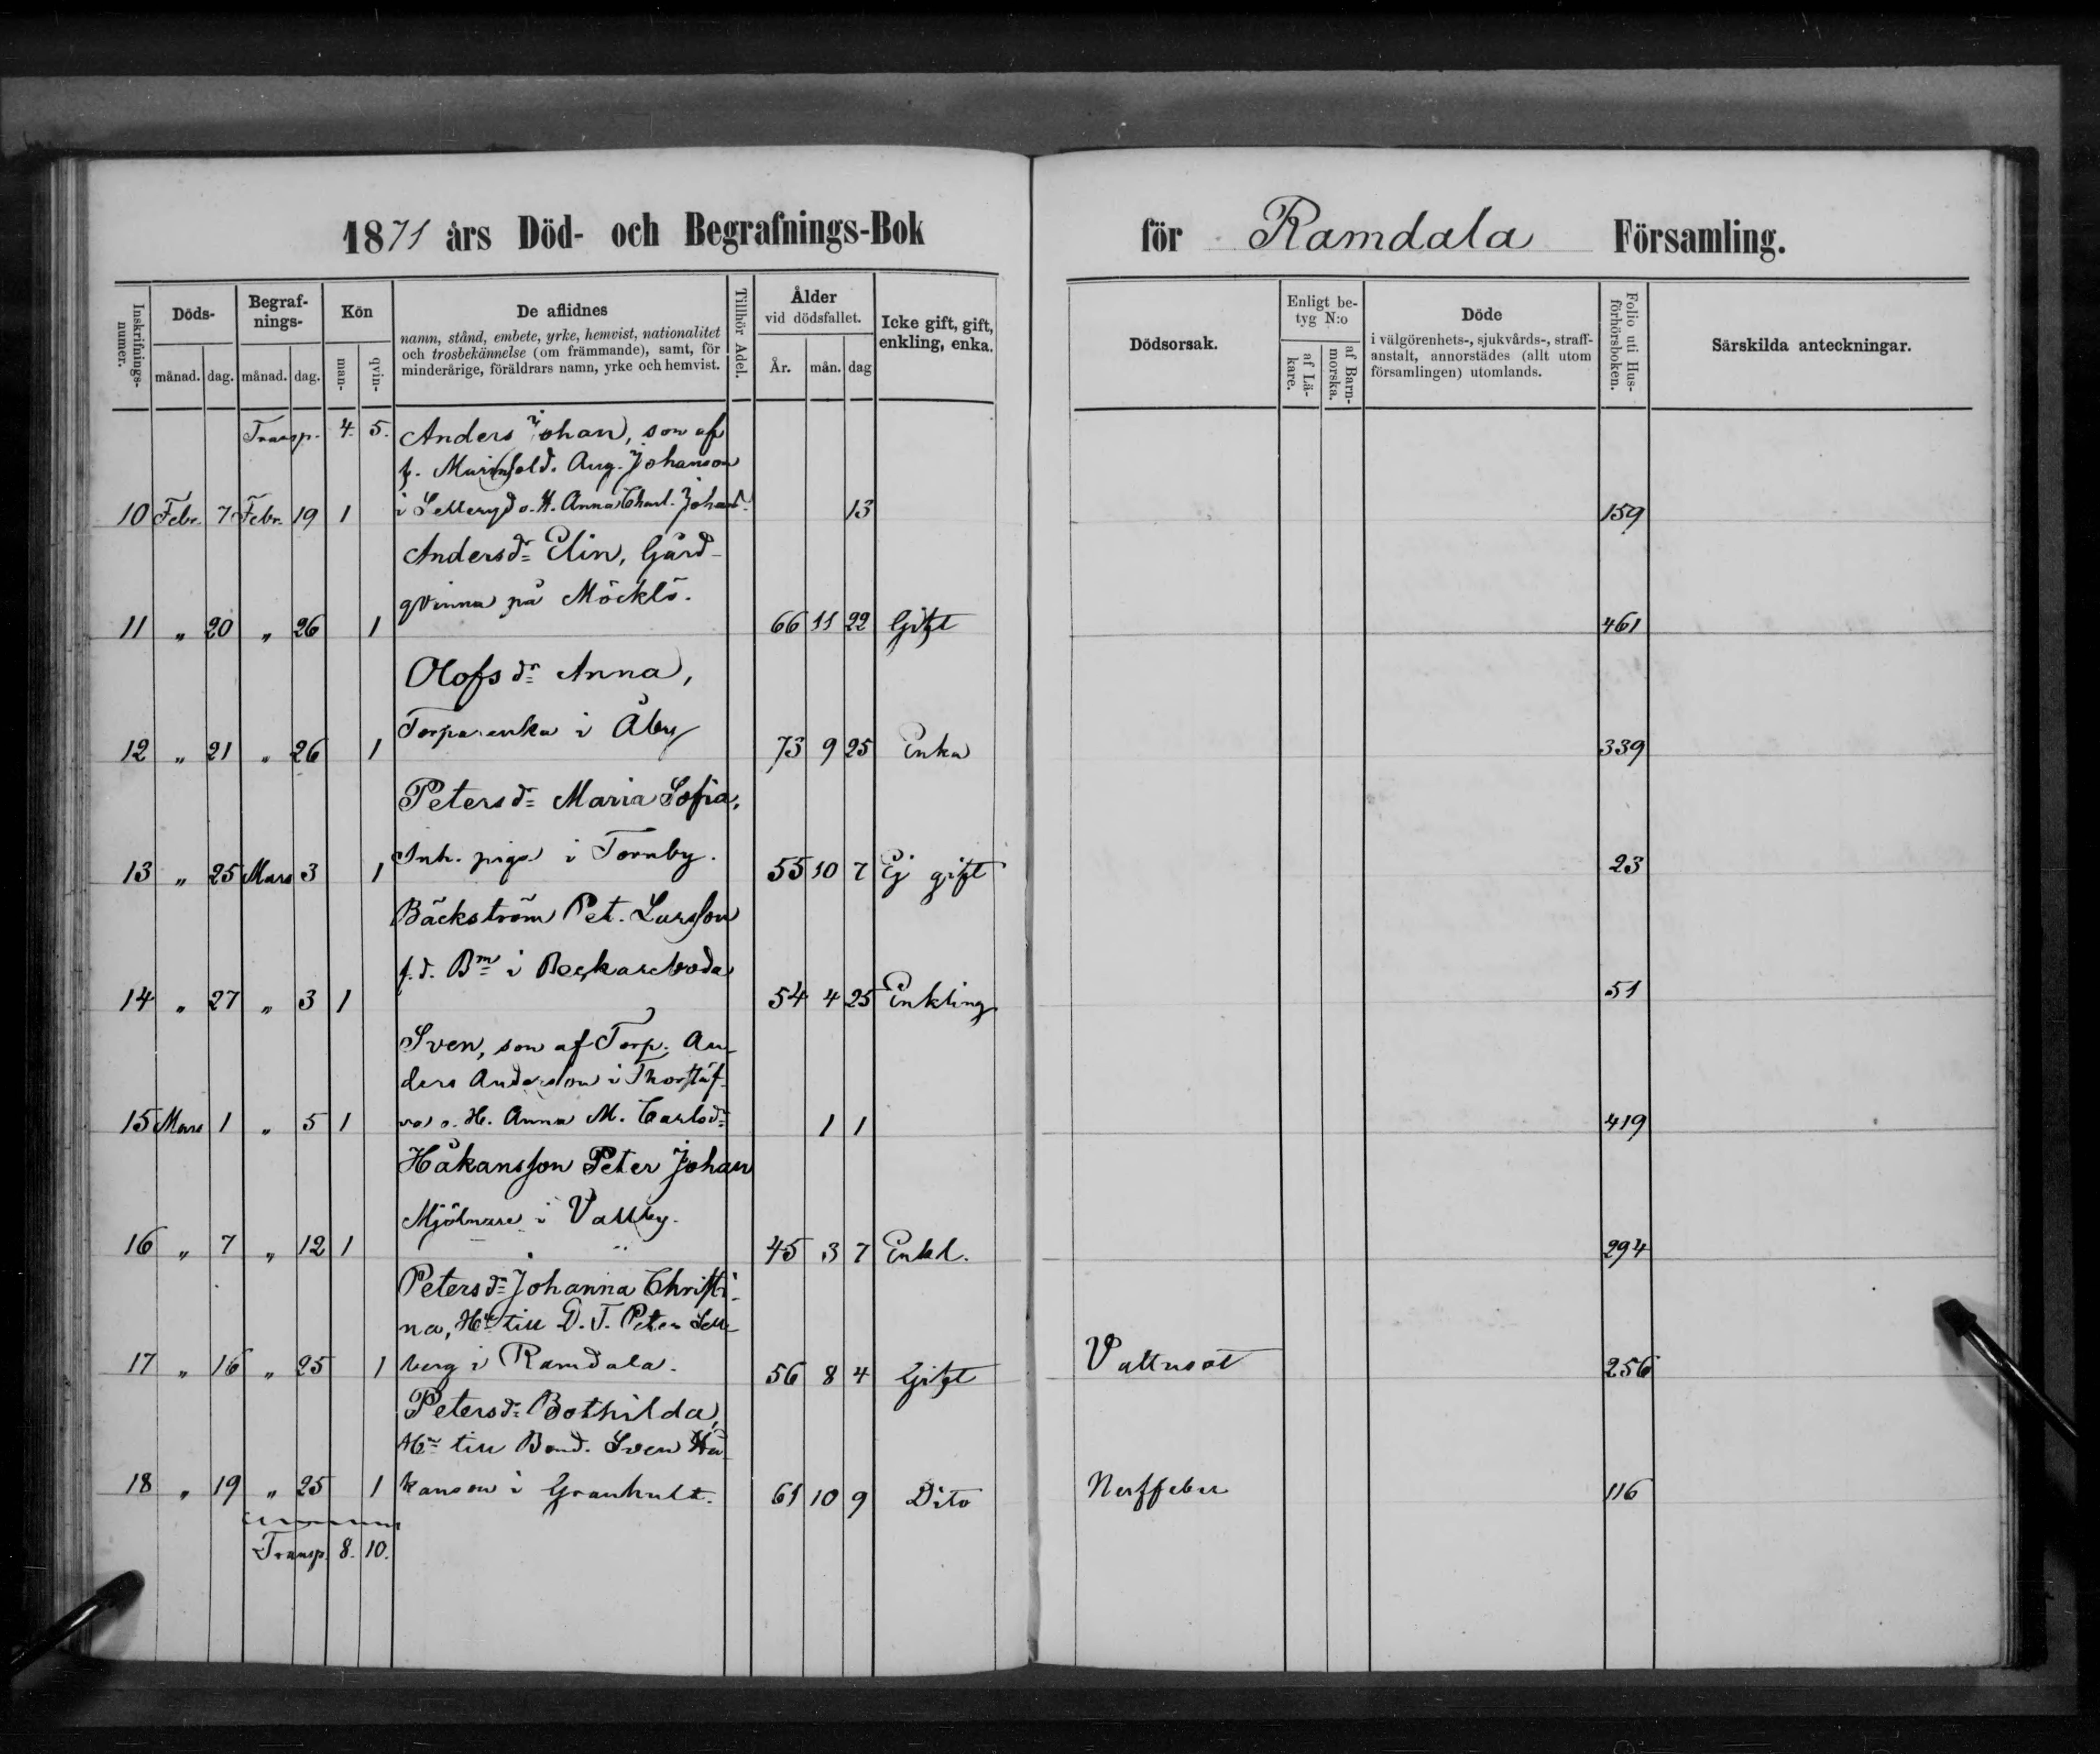 1871 års Död- och Begrafnings-Bok för Ramdala Församling.
Inskrifnings-numer.
Döds-
månad. dag.
Begraf-
nings-
månad. dag.
Kön
man- qvin-
De aflidnes
namn, stånd, embete, yrke, hemvist, nationalitet
och trosbekännelse (om främmande), samt, för
minderårige, föräldrars namn, yrke och hemvist.
Tillhör Adel.
Ålder
vid dödsfallet.
År. mån. dag
Icke gift, gift,
enkling, enka.
Dödsorsak.
Enligt be-
tyg N:o
af Lä-
kare.
af Barn-
morska.
Döde
i välgörenhets-, sjukvårds-, straff-
anstalt, annorstädes (allt utom
församlingen) utomlands.
Folio uti Hus-
förhörsboken.
Särskilda anteckningar.
Transp. 4. 5. Anders Johan, son af
Aug. Johanson
10 Febr. 7 Febr. 19 1 i o. H. Anna Charl. Johansd. 13 159
Andersd= Elin, Gård-
qvinna på Möcklö.
11 " 20 " 26 1 66 11 22 Gift 461
Olofsd= Anna,
Torparenka i Åby
12 " 21 " 26 1 73 9 25 Enka 339
Petersd= Maria Sofia,
Inh. piga i Tornby.
13 " 25 Mars 3 1 55 10 7 Ej gift 23
Bäckström Pet. Larsson
f.d. Bm= i
14 " 27 " 3 1 54 4 25 Enkling 51
Sven, son af Torp. An-
ders Anderson i Thorstäf-
15 Mars 1 " 5 1 va o. H. Anna M. Carlsd= 1 1 419
Håkansson Peter Johan
Mjölnare i Vallby.
16 " 7 " 12 1 45 3 7 Enkl. 294
Petersd= Johanna Christi-
na, Hu till D. T. Peter Sell-
17 " 16 " 25 1 berg i Ramdala. 56 8 4 Gift Vattusot 256
Petersd= Bothilda,
Hu= till Bond. Sven Hå-
18 " 19 " 25 1 kanson i Granhult. 61 10 9 Dito Nerffeber 116
Transp. 8. 10.